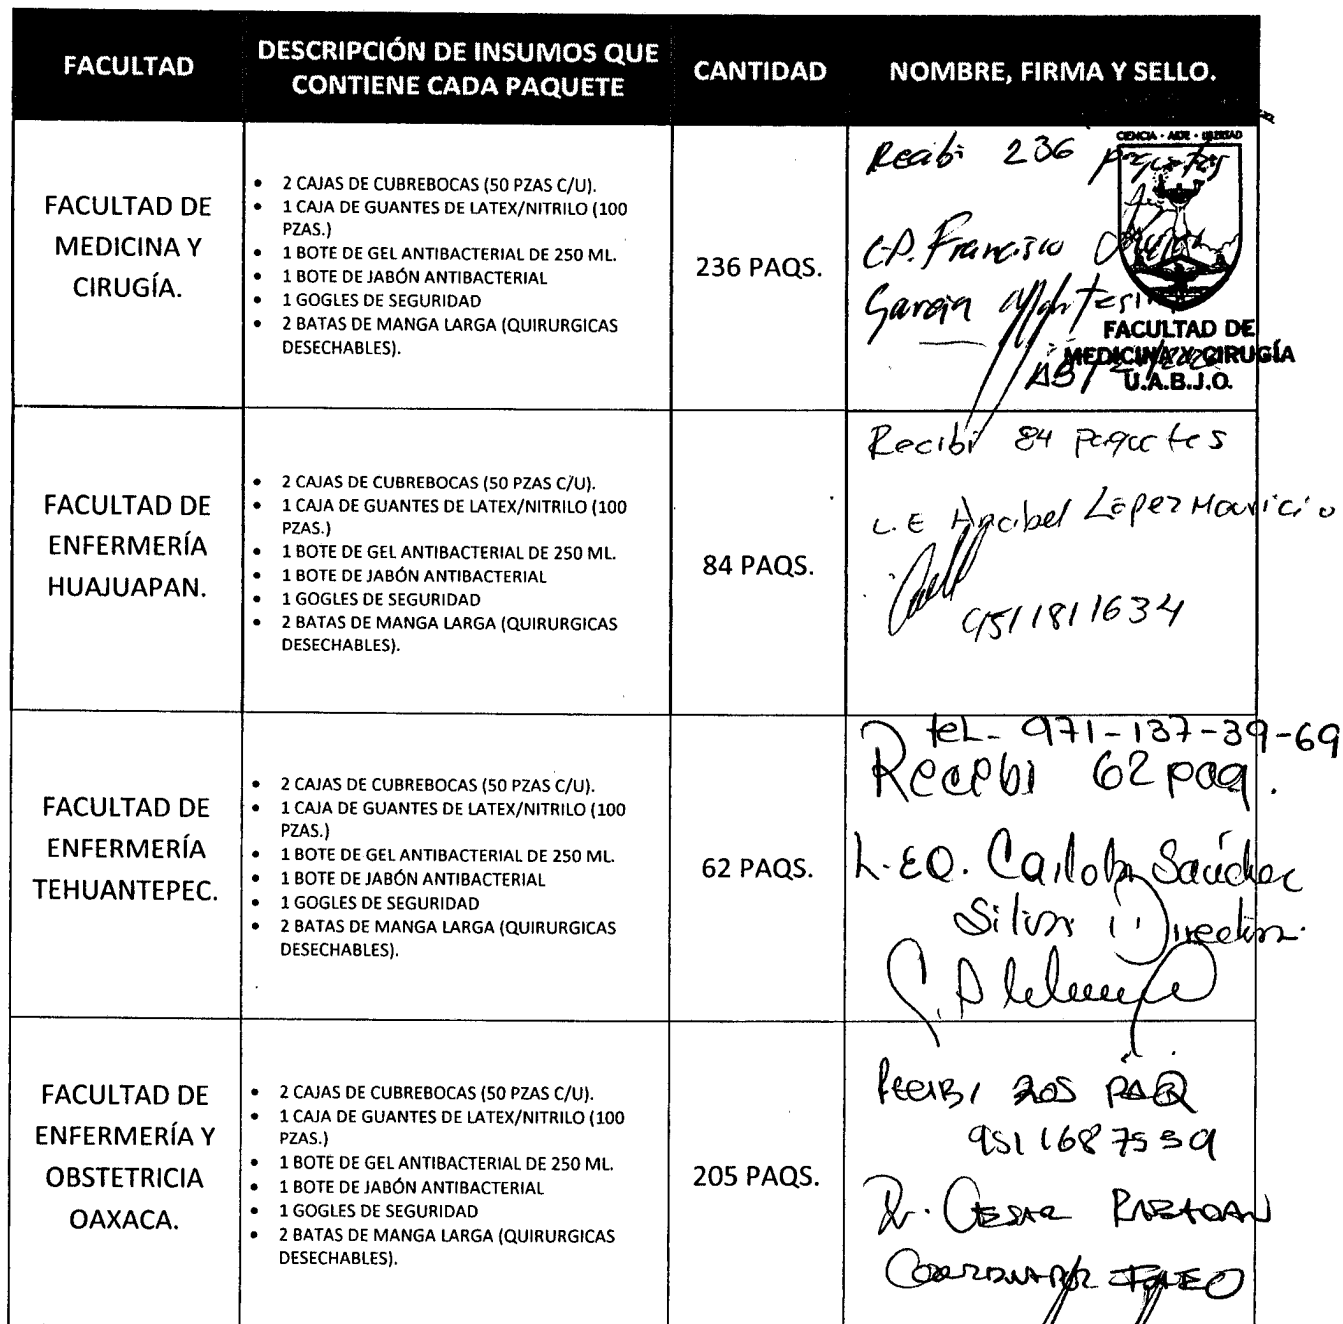 FACULTAD
DESCRIPCIÓN DE INSUMOS QUE
CONTIENE CADA PAQUETE
CANTIDAD
NOMBRE, FIRMA Y SELLO.
FACULTAD DE
MEDICINA Y
CIRUGÍA.
• 2 CAJAS DE CUBREBOCAS (50 PZAS C/U).
• 1 CAJA DE GUANTES DE LATEX/NITRILO (100
PZAS.)
• 1 BOTE DE GEL ANTIBACTERIAL DE 250 ML.
• 1 BOTE DE JABÓN ANTIBACTERIAL
• 1 GOGLES DE SEGURIDAD
• 2 BATAS DE MANGA LARGA (QUIRURGICAS
DESECHABLES).
236 PAQS.
Recibi 236 paquetes
C.P. Francisco
Garcia
CIENCIA · ARTE · LIBERTAD
FACULTAD DE
MEDICINA Y CIRUGÍA
U.A.B.J.O.
FACULTAD DE
ENFERMERÍA
HUAJUAPAN.
• 2 CAJAS DE CUBREBOCAS (50 PZAS C/U).
• 1 CAJA DE GUANTES DE LATEX/NITRILO (100
PZAS.)
• 1 BOTE DE GEL ANTIBACTERIAL DE 250 ML.
• 1 BOTE DE JABÓN ANTIBACTERIAL
• 1 GOGLES DE SEGURIDAD
• 2 BATAS DE MANGA LARGA (QUIRURGICAS
DESECHABLES).
84 PAQS.
Recibi 84 paquetes
L.E Anabel López Mauricio
9511811634
FACULTAD DE
ENFERMERÍA
TEHUANTEPEC.
• 2 CAJAS DE CUBREBOCAS (50 PZAS C/U).
• 1 CAJA DE GUANTES DE LATEX/NITRILO (100
PZAS.)
• 1 BOTE DE GEL ANTIBACTERIAL DE 250 ML.
• 1 BOTE DE JABÓN ANTIBACTERIAL
• 1 GOGLES DE SEGURIDAD
• 2 BATAS DE MANGA LARGA (QUIRURGICAS
DESECHABLES).
62 PAQS.
tel- 971-137-39-69
Recibi 62 paq.
L.EO. Carlota Sánchez
Silva Directora.
FACULTAD DE
ENFERMERÍA Y
OBSTETRICIA
OAXACA.
• 2 CAJAS DE CUBREBOCAS (50 PZAS C/U).
• 1 CAJA DE GUANTES DE LATEX/NITRILO (100
PZAS.)
• 1 BOTE DE GEL ANTIBACTERIAL DE 250 ML.
• 1 BOTE DE JABÓN ANTIBACTERIAL
• 1 GOGLES DE SEGURIDAD
• 2 BATAS DE MANGA LARGA (QUIRURGICAS
DESECHABLES).
205 PAQS.
RECIBI 205 PAQ
951 168 7559
Dr. CESAR
COORDINADOR